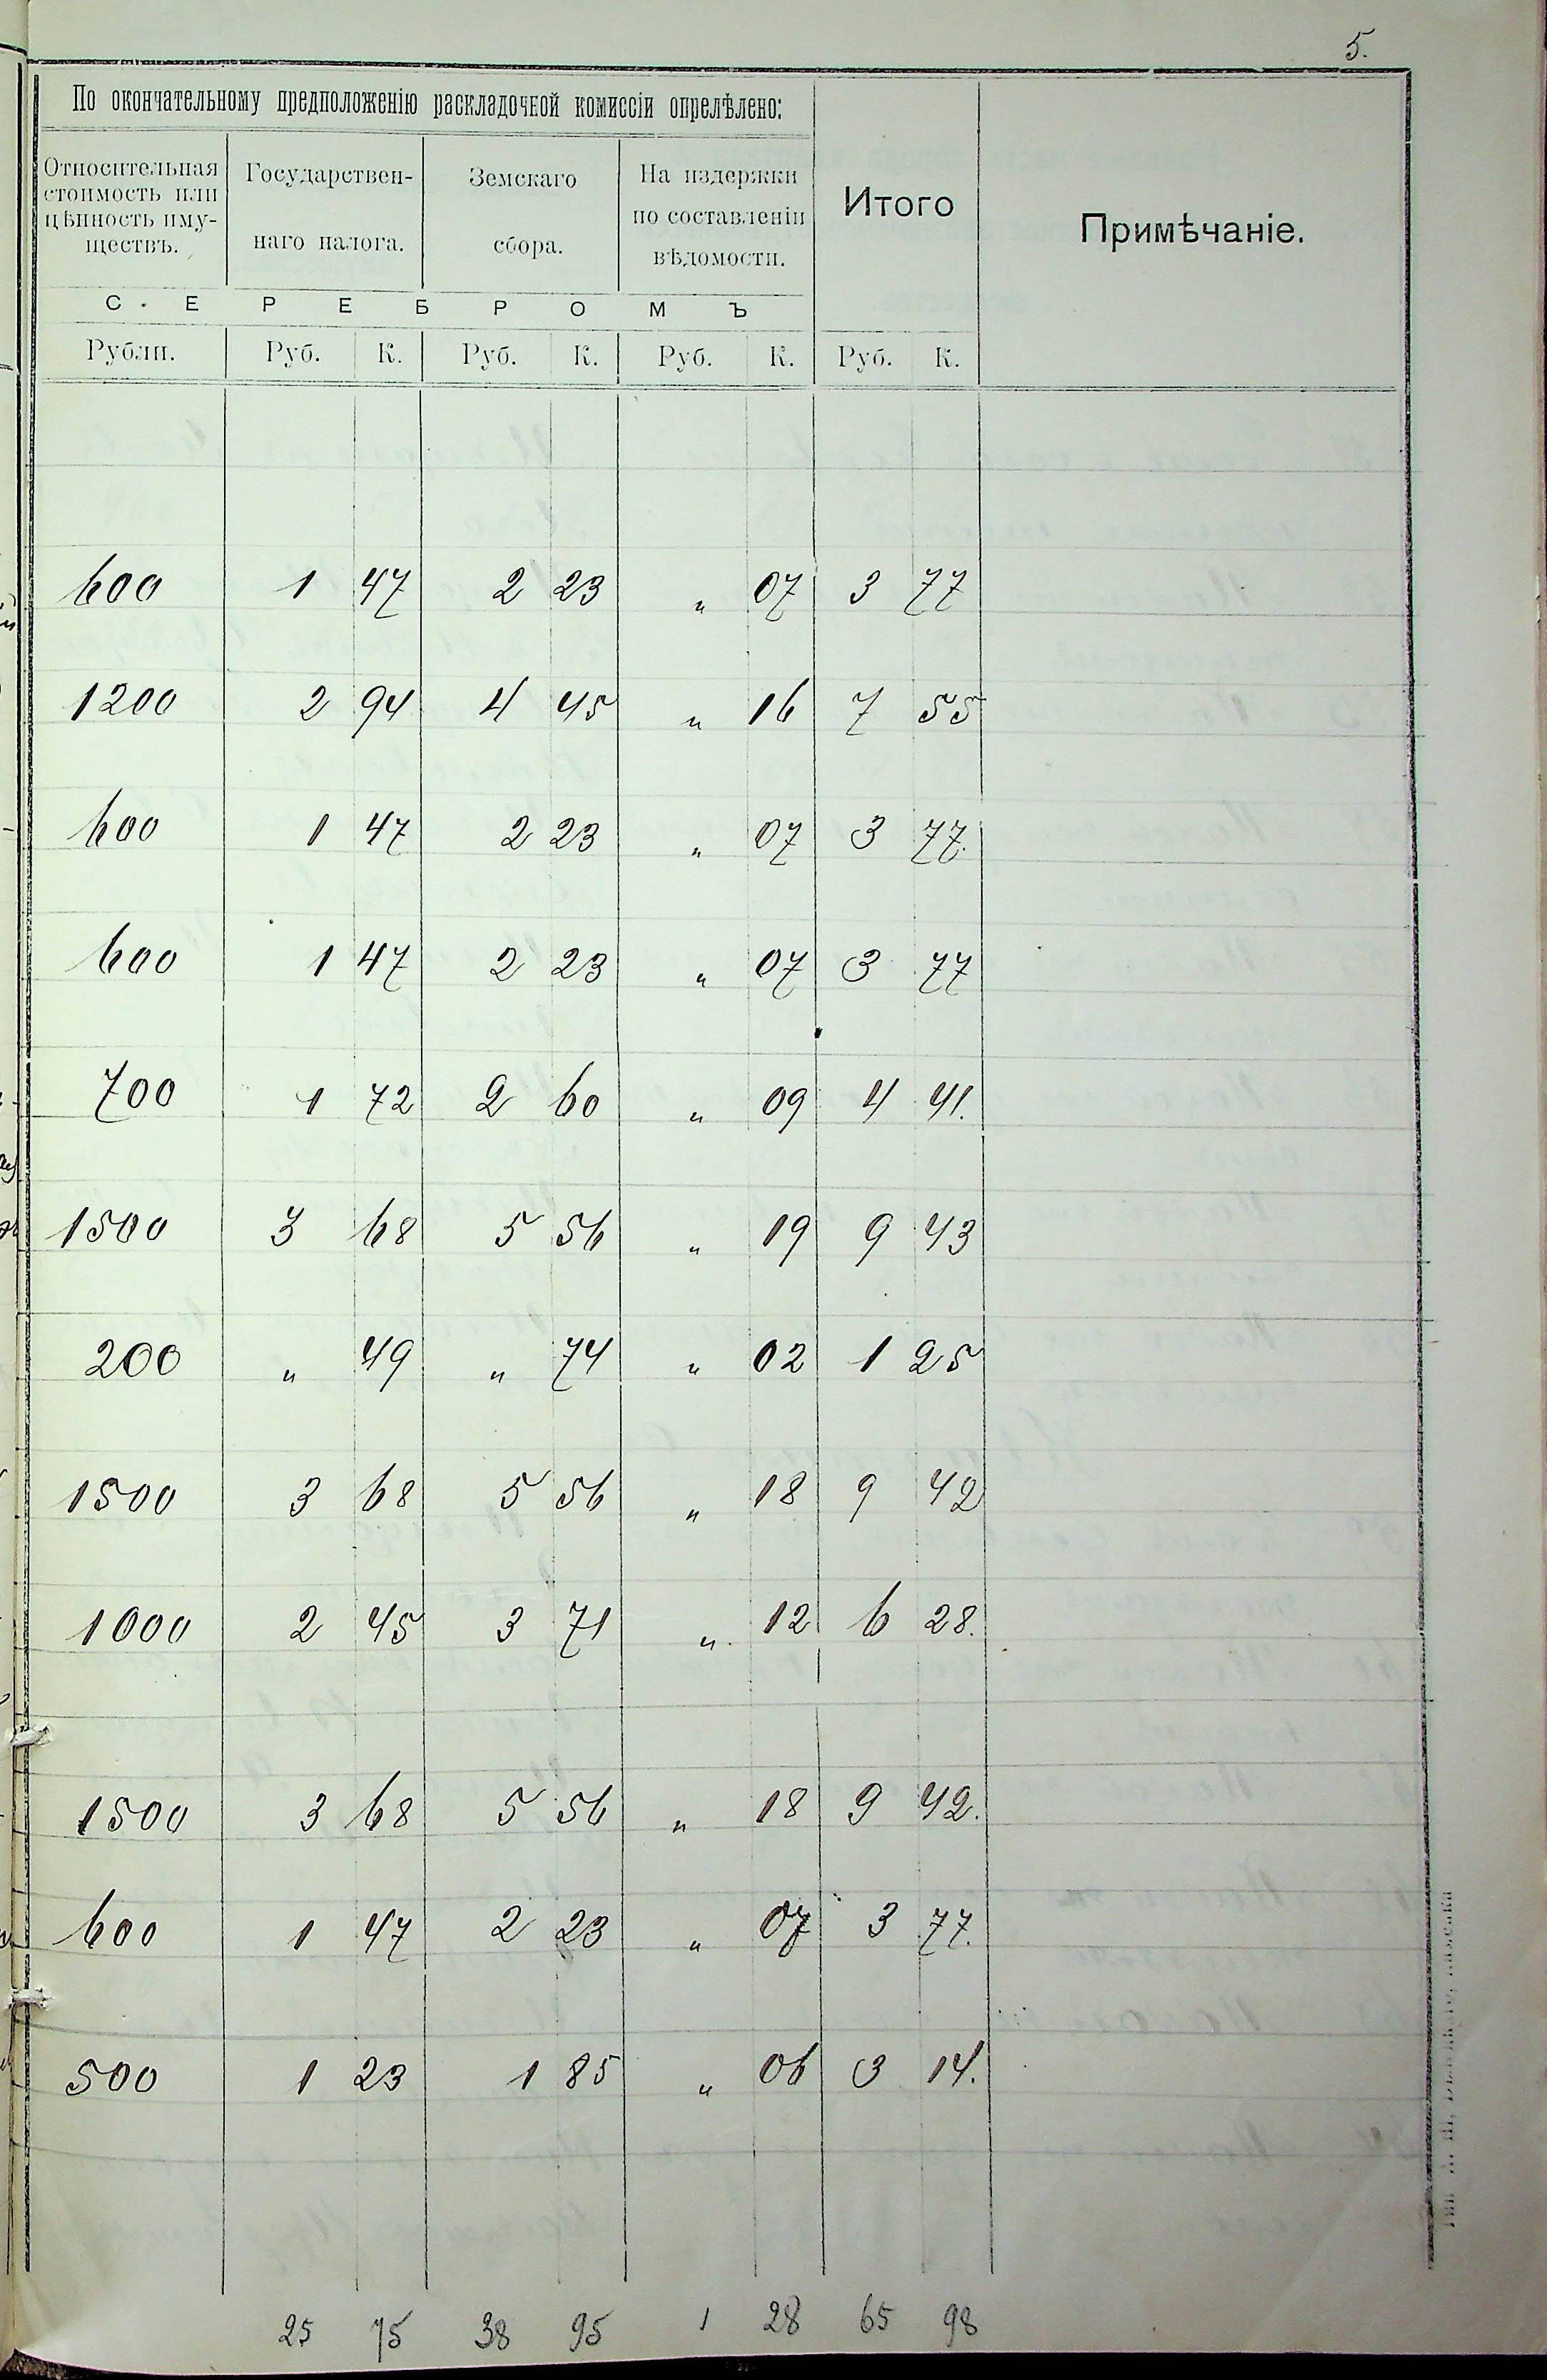 5.
По окончательному предположенію раскладочной комиссіи опрелѣлено:
Относительная стоимость или цѣнность имуществъ.
Государственнаго налога.
Земскаго сбора.
На издержки по составленіи вѣдомости.
Итого
Примѣчаніе.
С Е Р Е Б Р О М Ъ
Рубли. Руб. К. Руб. К. Руб. К. Руб. К.
600 1 47 2 23 " 07 3 77
1200 2 94 4 45 " 16 7 55
600 1 47 2 23 " 07 3 77.
600 1 47 2 23 " 07 3 77
700 1 72 2 60 " 09 4 41.
1500 3 68 5 56 " 19 9 43
200 " 49 " 74 " 02 1 25
1500 3 68 5 56 " 18 9 42
1000 2 45 3 71 " 12 6 28.
1500 3 68 5 56 " 18 9 42.
600 1 47 2 23 " 07 3 77.
500 1 23 1 85 " 06 3 14.
25 75 38 95 1 28 65 98